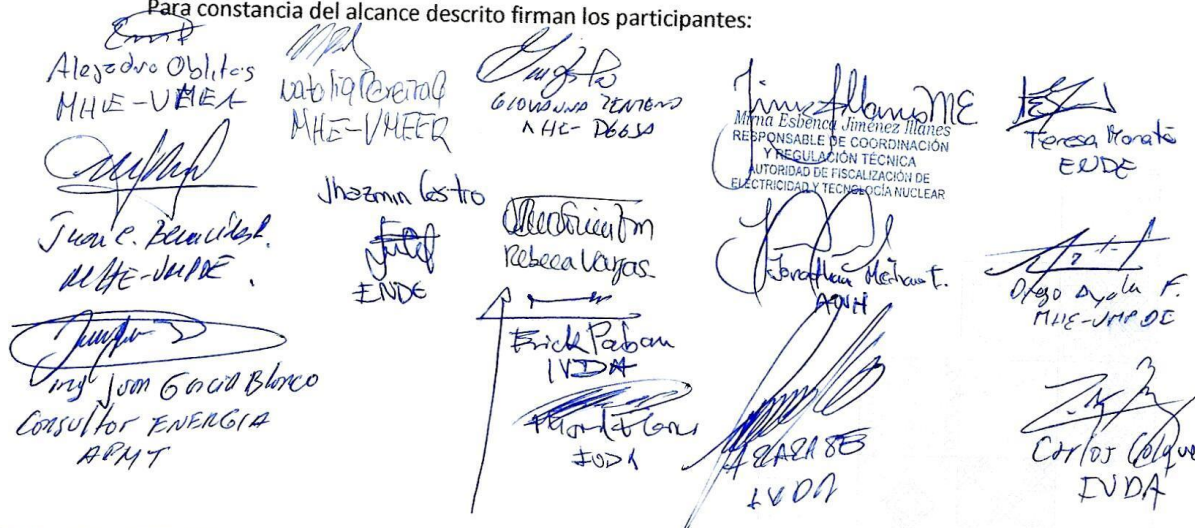 Para constancia del alcance descrito firman los participantes:
Alejandro Oblitas
MHE-VMEEA
Natalia Pereira
MHE-VMEER
GIOVANNA ZENTENO
MHE-DGGSA
Mirna Esbenca Jimenez Illanes
RESPONSABLE DE COORDINACIÓN
Y REGULACIÓN TÉCNICA
AUTORIDAD DE FISCALIZACIÓN DE
ELECTRICIDAD Y TECNOLOGÍA NUCLEAR
Teresa Morató
ENDE
Juan C.
MHE-VMPDE
Jhazmin Castro
ENDE
Rebeca Vargas
Jonathan
ANH
Diego Ayala F.
MHE-VMPDE
Ing Juan Garcia Blanco
CONSULTOR ENERGIA
APMT
Erick Paban
IVDA
IVDA
IVDA
Carlos Colque
IVDA